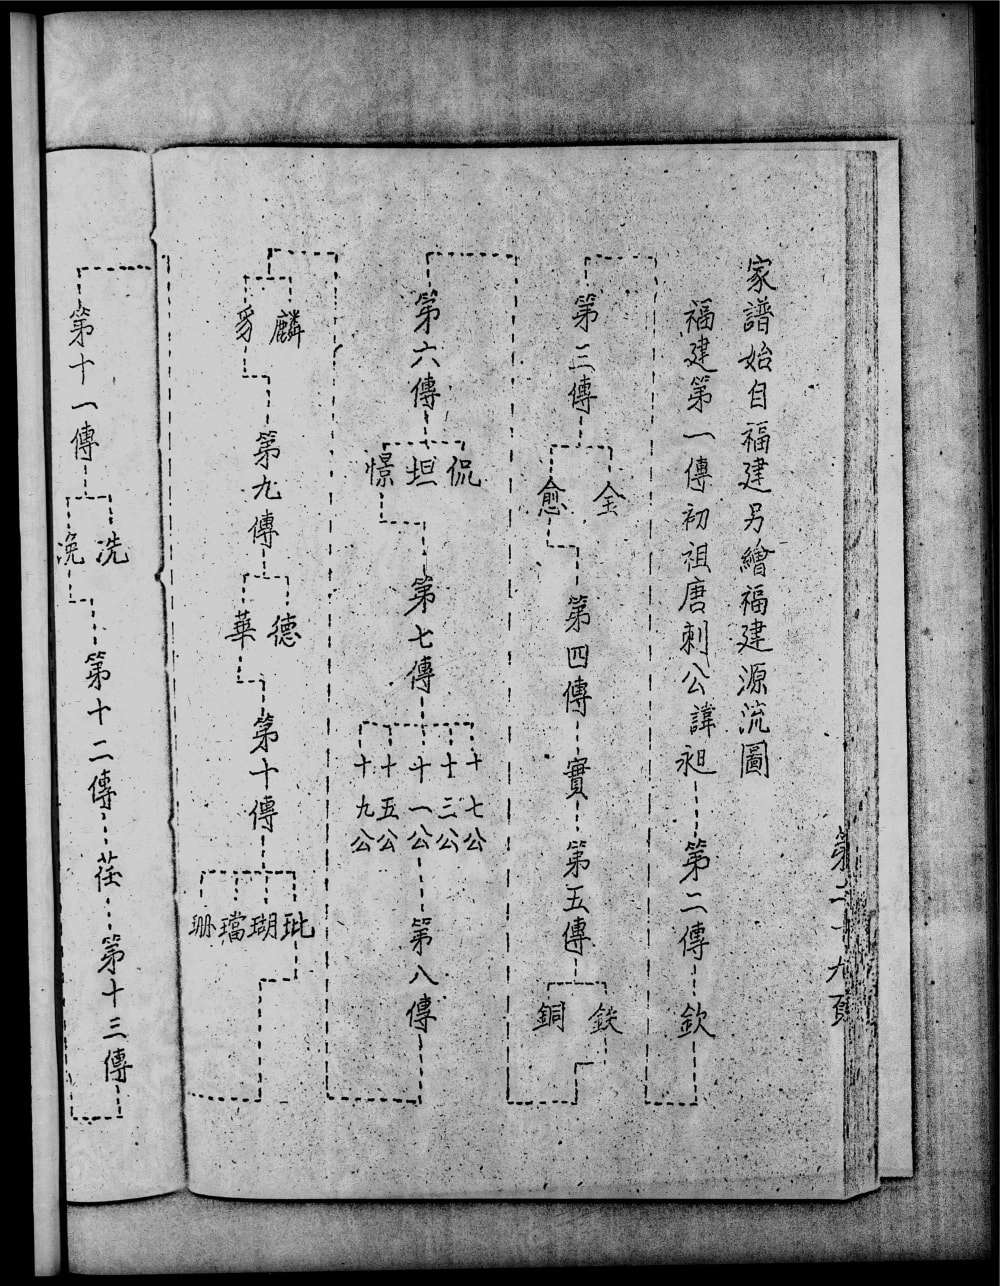 第二十九頁
家譜始自福建另繪福建源流圖
福建第一傳初祖唐刺公諱昶
第二傳
欽
第三傳
金 愈
第四傳
實
第五傳
鉄 銅
第六傳
侃 坦 憬
第七傳
十七公 十三公 十一公 十五公 十九公
第八傳
麟 豸
第九傳
德 華
第十傳
玭 瑚 璫 珊
第十一傳
冼 浼
第十二傳
荏
第十三傳